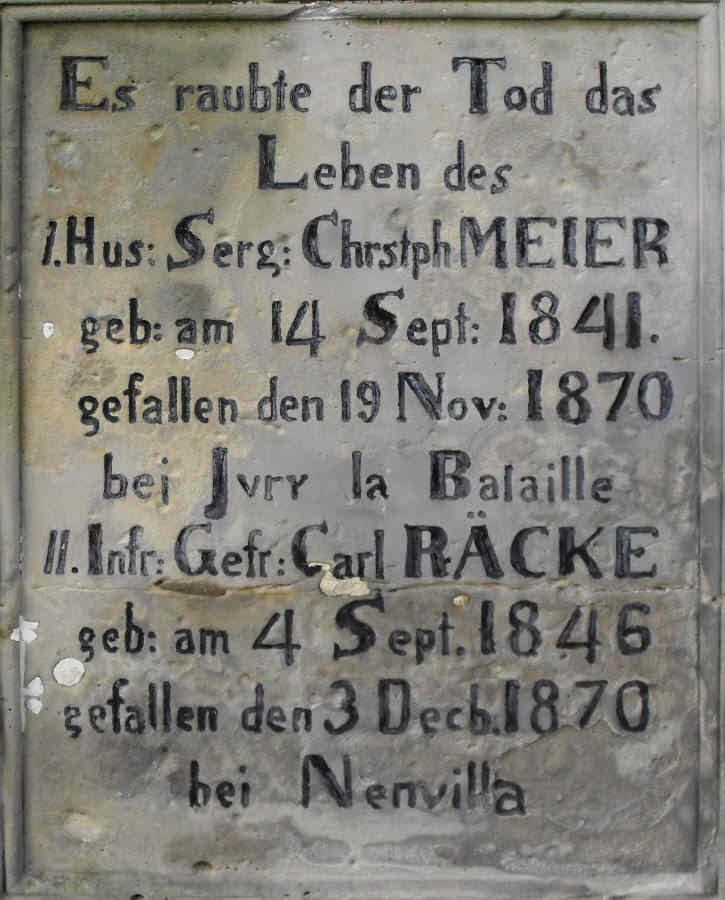 Es raubte der Tod das
Leben des
I. Hus: Serg: Chrstph MEIER
geb: am 14 Sept: 1841.
gefallen den 19 Nov: 1870
bei Jvry la Bataille
II. Infr: Gefr: Carl RÄCKE
geb: am 4 Sept. 1846
gefallen den 3 Decb. 1870
bei Nenvilla